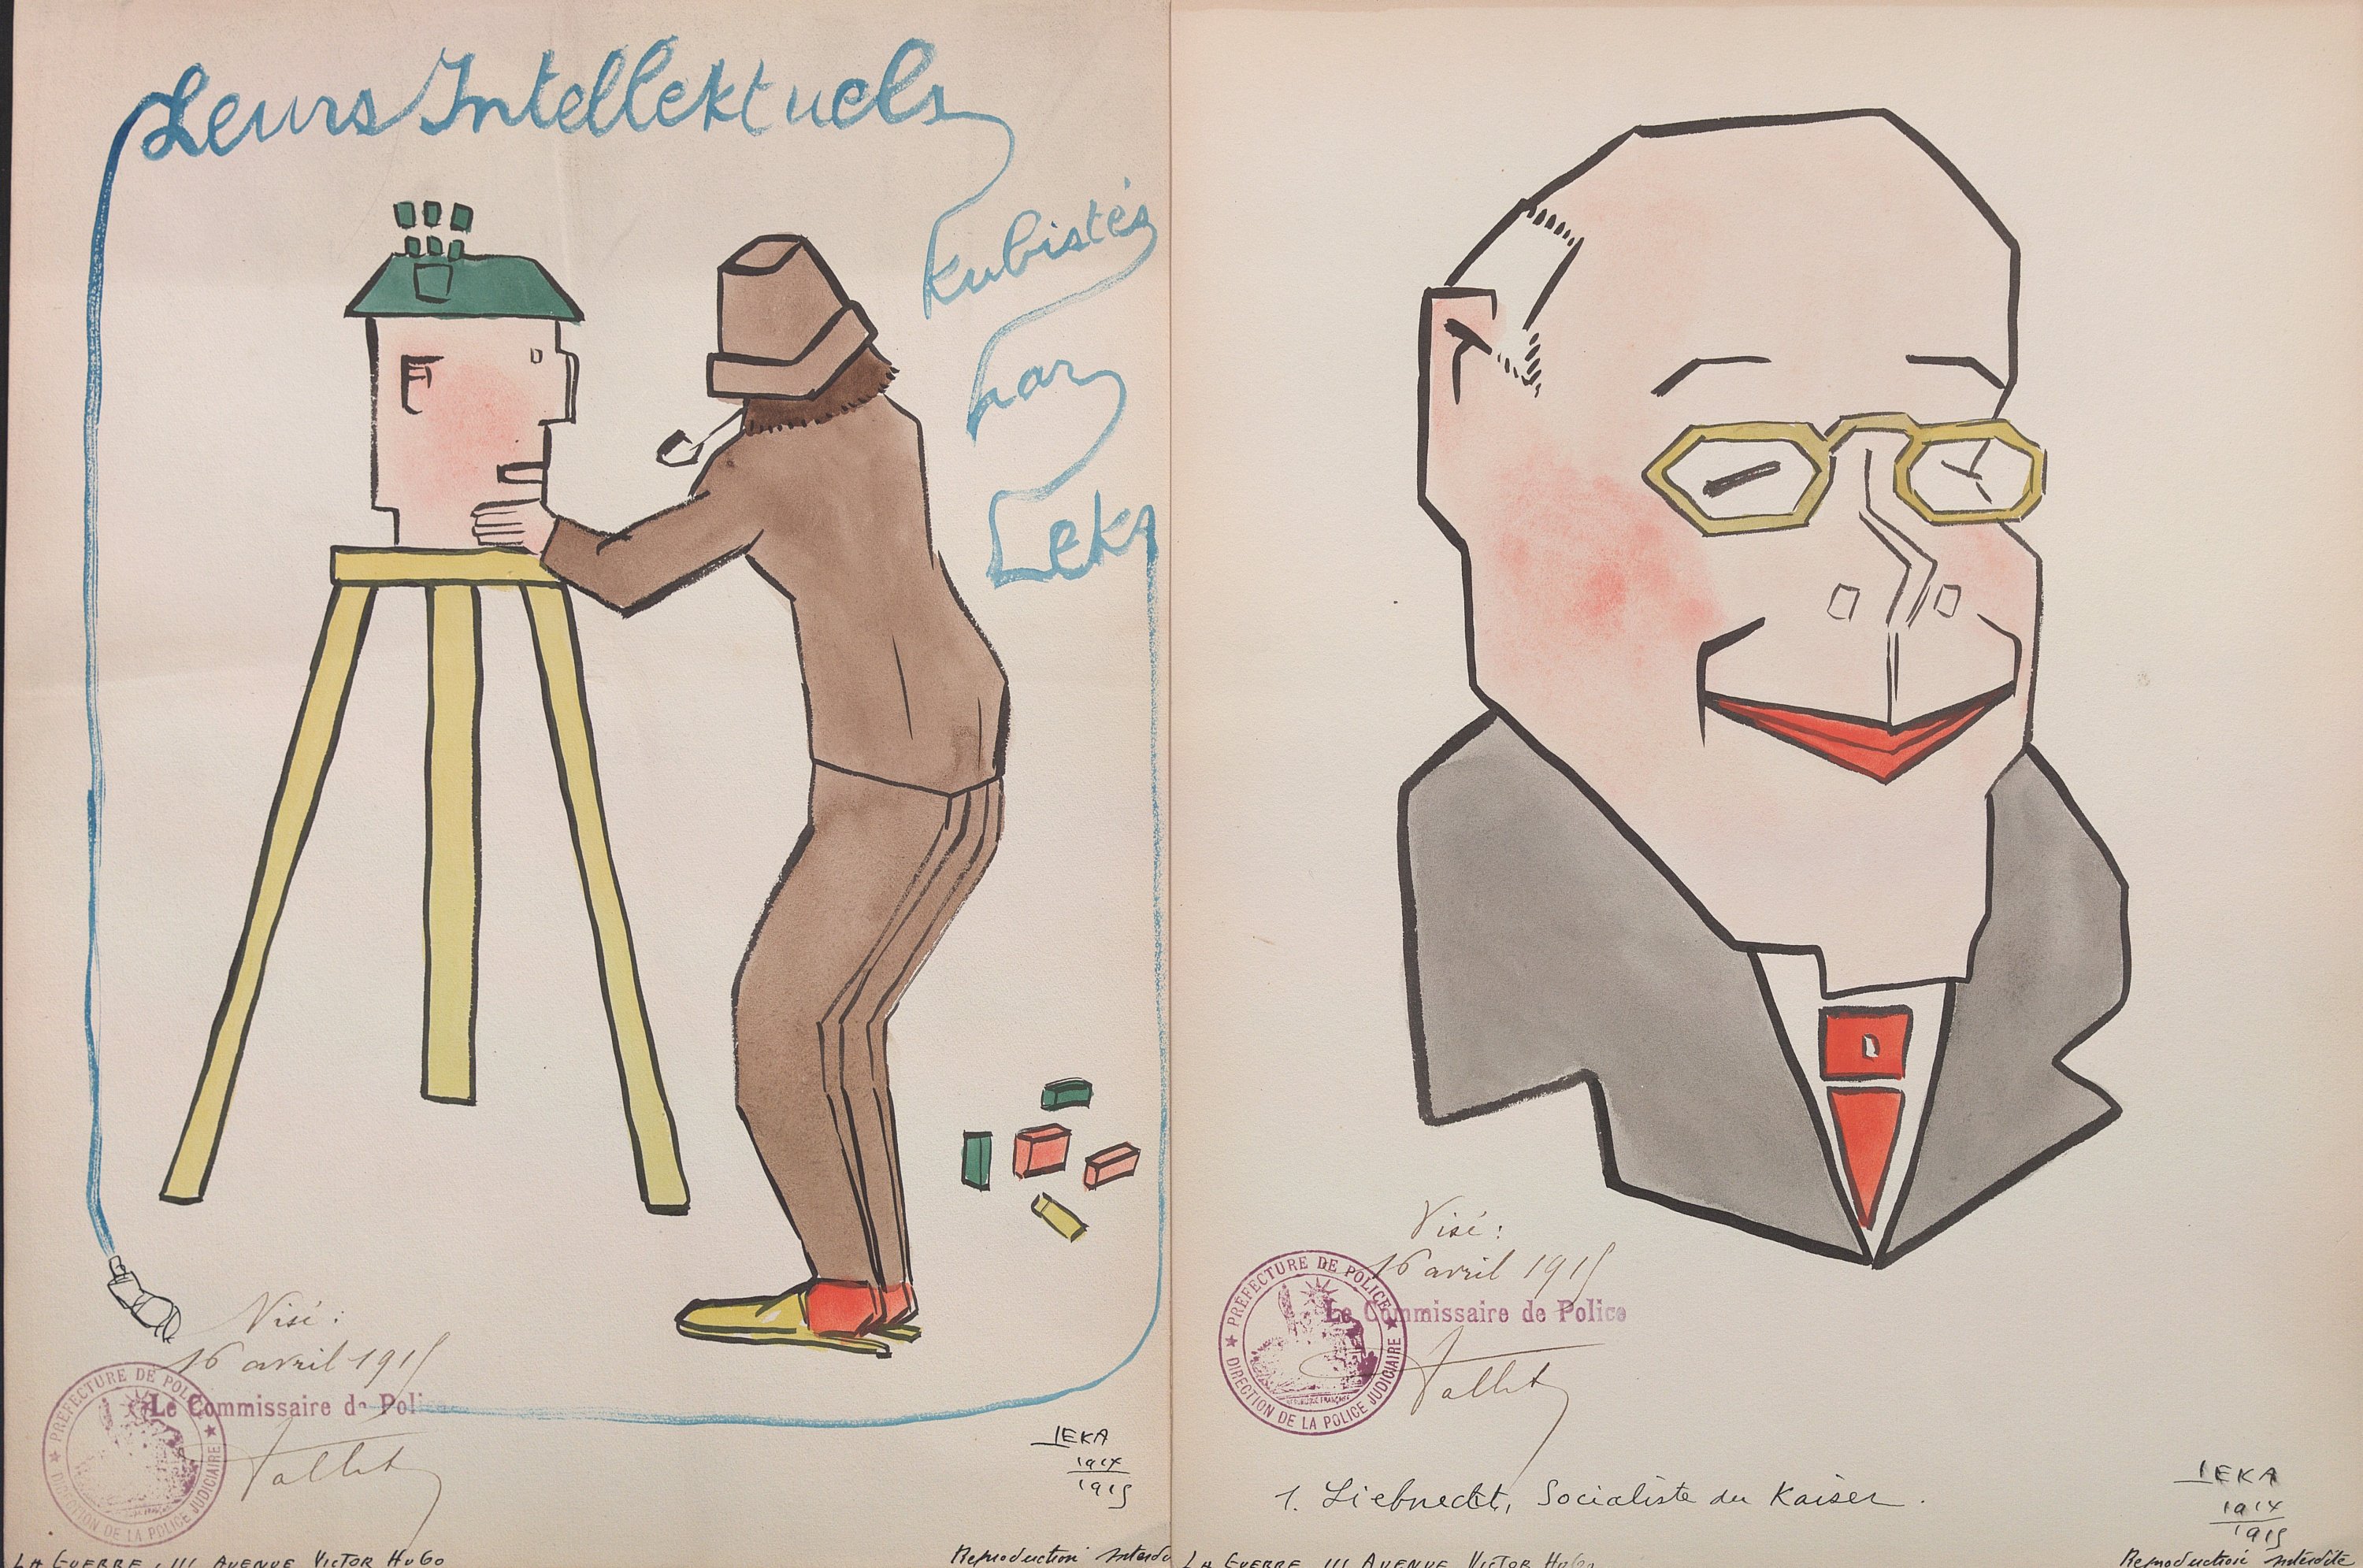 Leurs Intellektuels
kubistés
par
Leka
Visé:
16 avril 1915
PRÉFECTURE DE POLICE
DIRECTION DE LA POLICE JUDICIAIRE
Le Commissaire de Poli
LEKA
1914
1915
LA GUERRE, 111 AVENUE VICTOR HUGO
Reproduction
Visé:
16 avril 1915
PRÉFECTURE DE POLICE
DIRECTION DE LA POLICE JUDICIAIRE
Le Commissaire de Police
1. Liebnecht, Socialiste du Kaiser.
LEKA
1914
1915
LA GUERRE 111 AVENUE VICTOR HUGO
Reproduction interdite